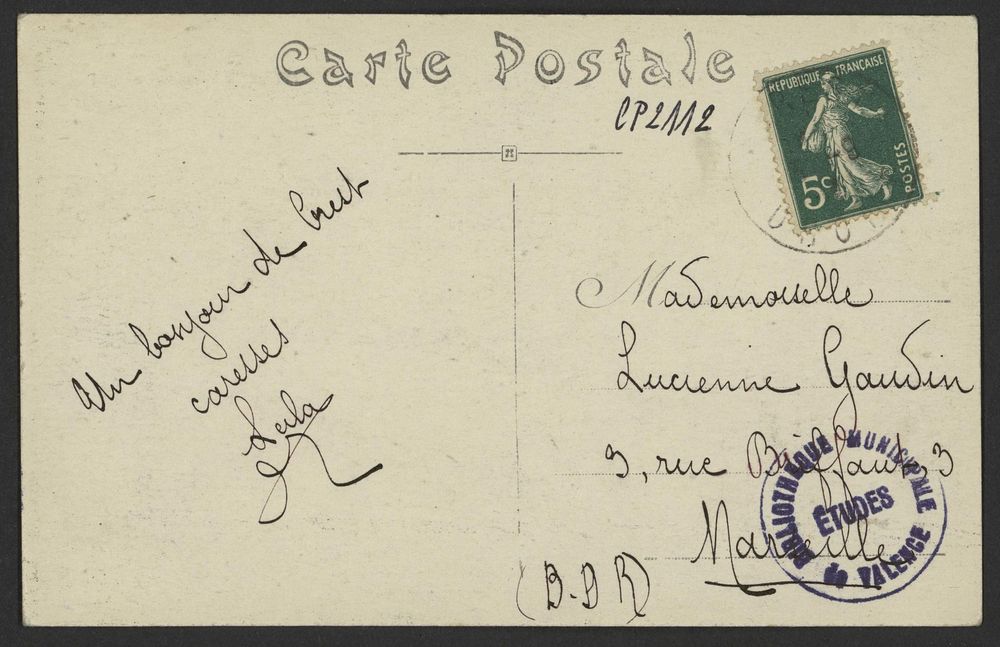 Carte Postale
CP2112
REPUBLIQUE FRANÇAISE
POSTES
5c
Un bonjour de Crest
caresses
Leila
Mademoiselle
Lucienne Gaudin
3, rue Briffaut, 3
Marseille
(B.D R)
BIBLIOTHÈQUE MUNICIPALE
de VALENCE
ÉTUDES